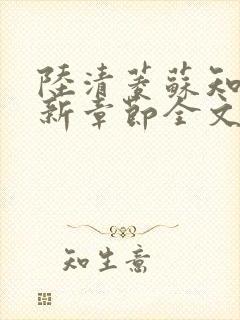 陸清菱蘇知
新章節全文
知生意